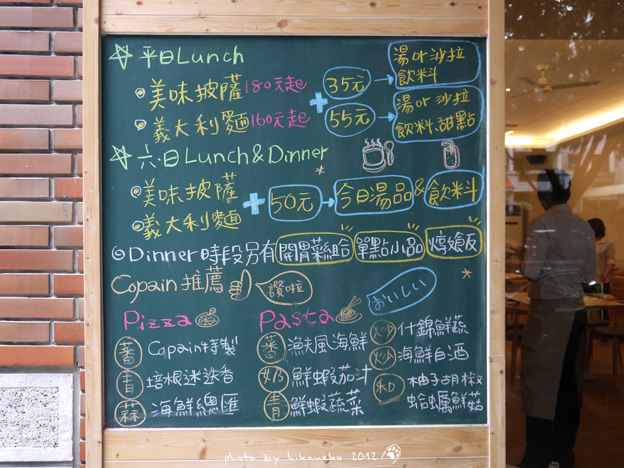 平日Lunch
美味披薩 180元起
義大利麵 160元起
+
35元 → 湯or沙拉 飲料
55元 → 湯or沙拉 飲料.甜點
六.日Lunch&Dinner
美味披薩
義大利麵
+ 50元 → 今日湯品 & 飲料
Dinner時段另有 開胃菜組合 單點小品 燉飯
Copain推薦 讚啦
おいしい
Pizza
蕃 Copain特製
青 培根迷迭香
蒜 海鮮總匯
Pasta
蕃 漁夫風海鮮
奶 鮮蝦茄汁
青 鮮蝦蔬菜
炒 什錦鮮蔬
炒 海鮮白酒
和 柚子胡椒
蛤蠣鮮菇
photo by hikaneko 2012